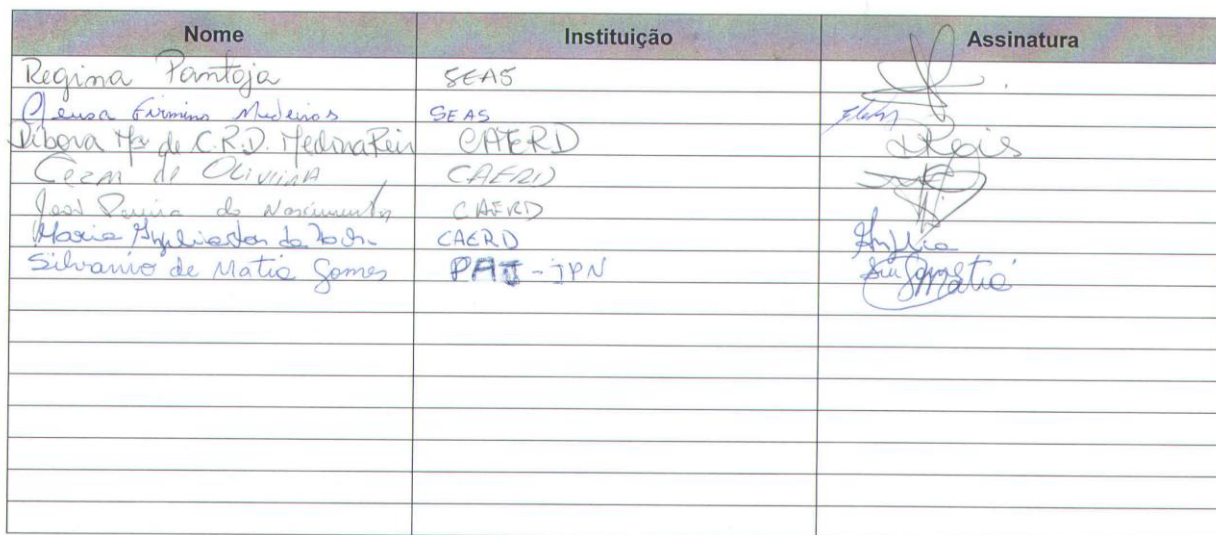 Nome Instituição Assinatura
Regina Pantoja SEAS
Cleusa Firmino Medeiros SEAS
Débora Mª de C.R.D. Medina Reis CAERD DReis
Cezar de Oliveira CAERD
José Pereira do Nascimento CAERD
Maria da CAERD
Silvanio de Matia Gomes PAJ - JPN Gomes Matia